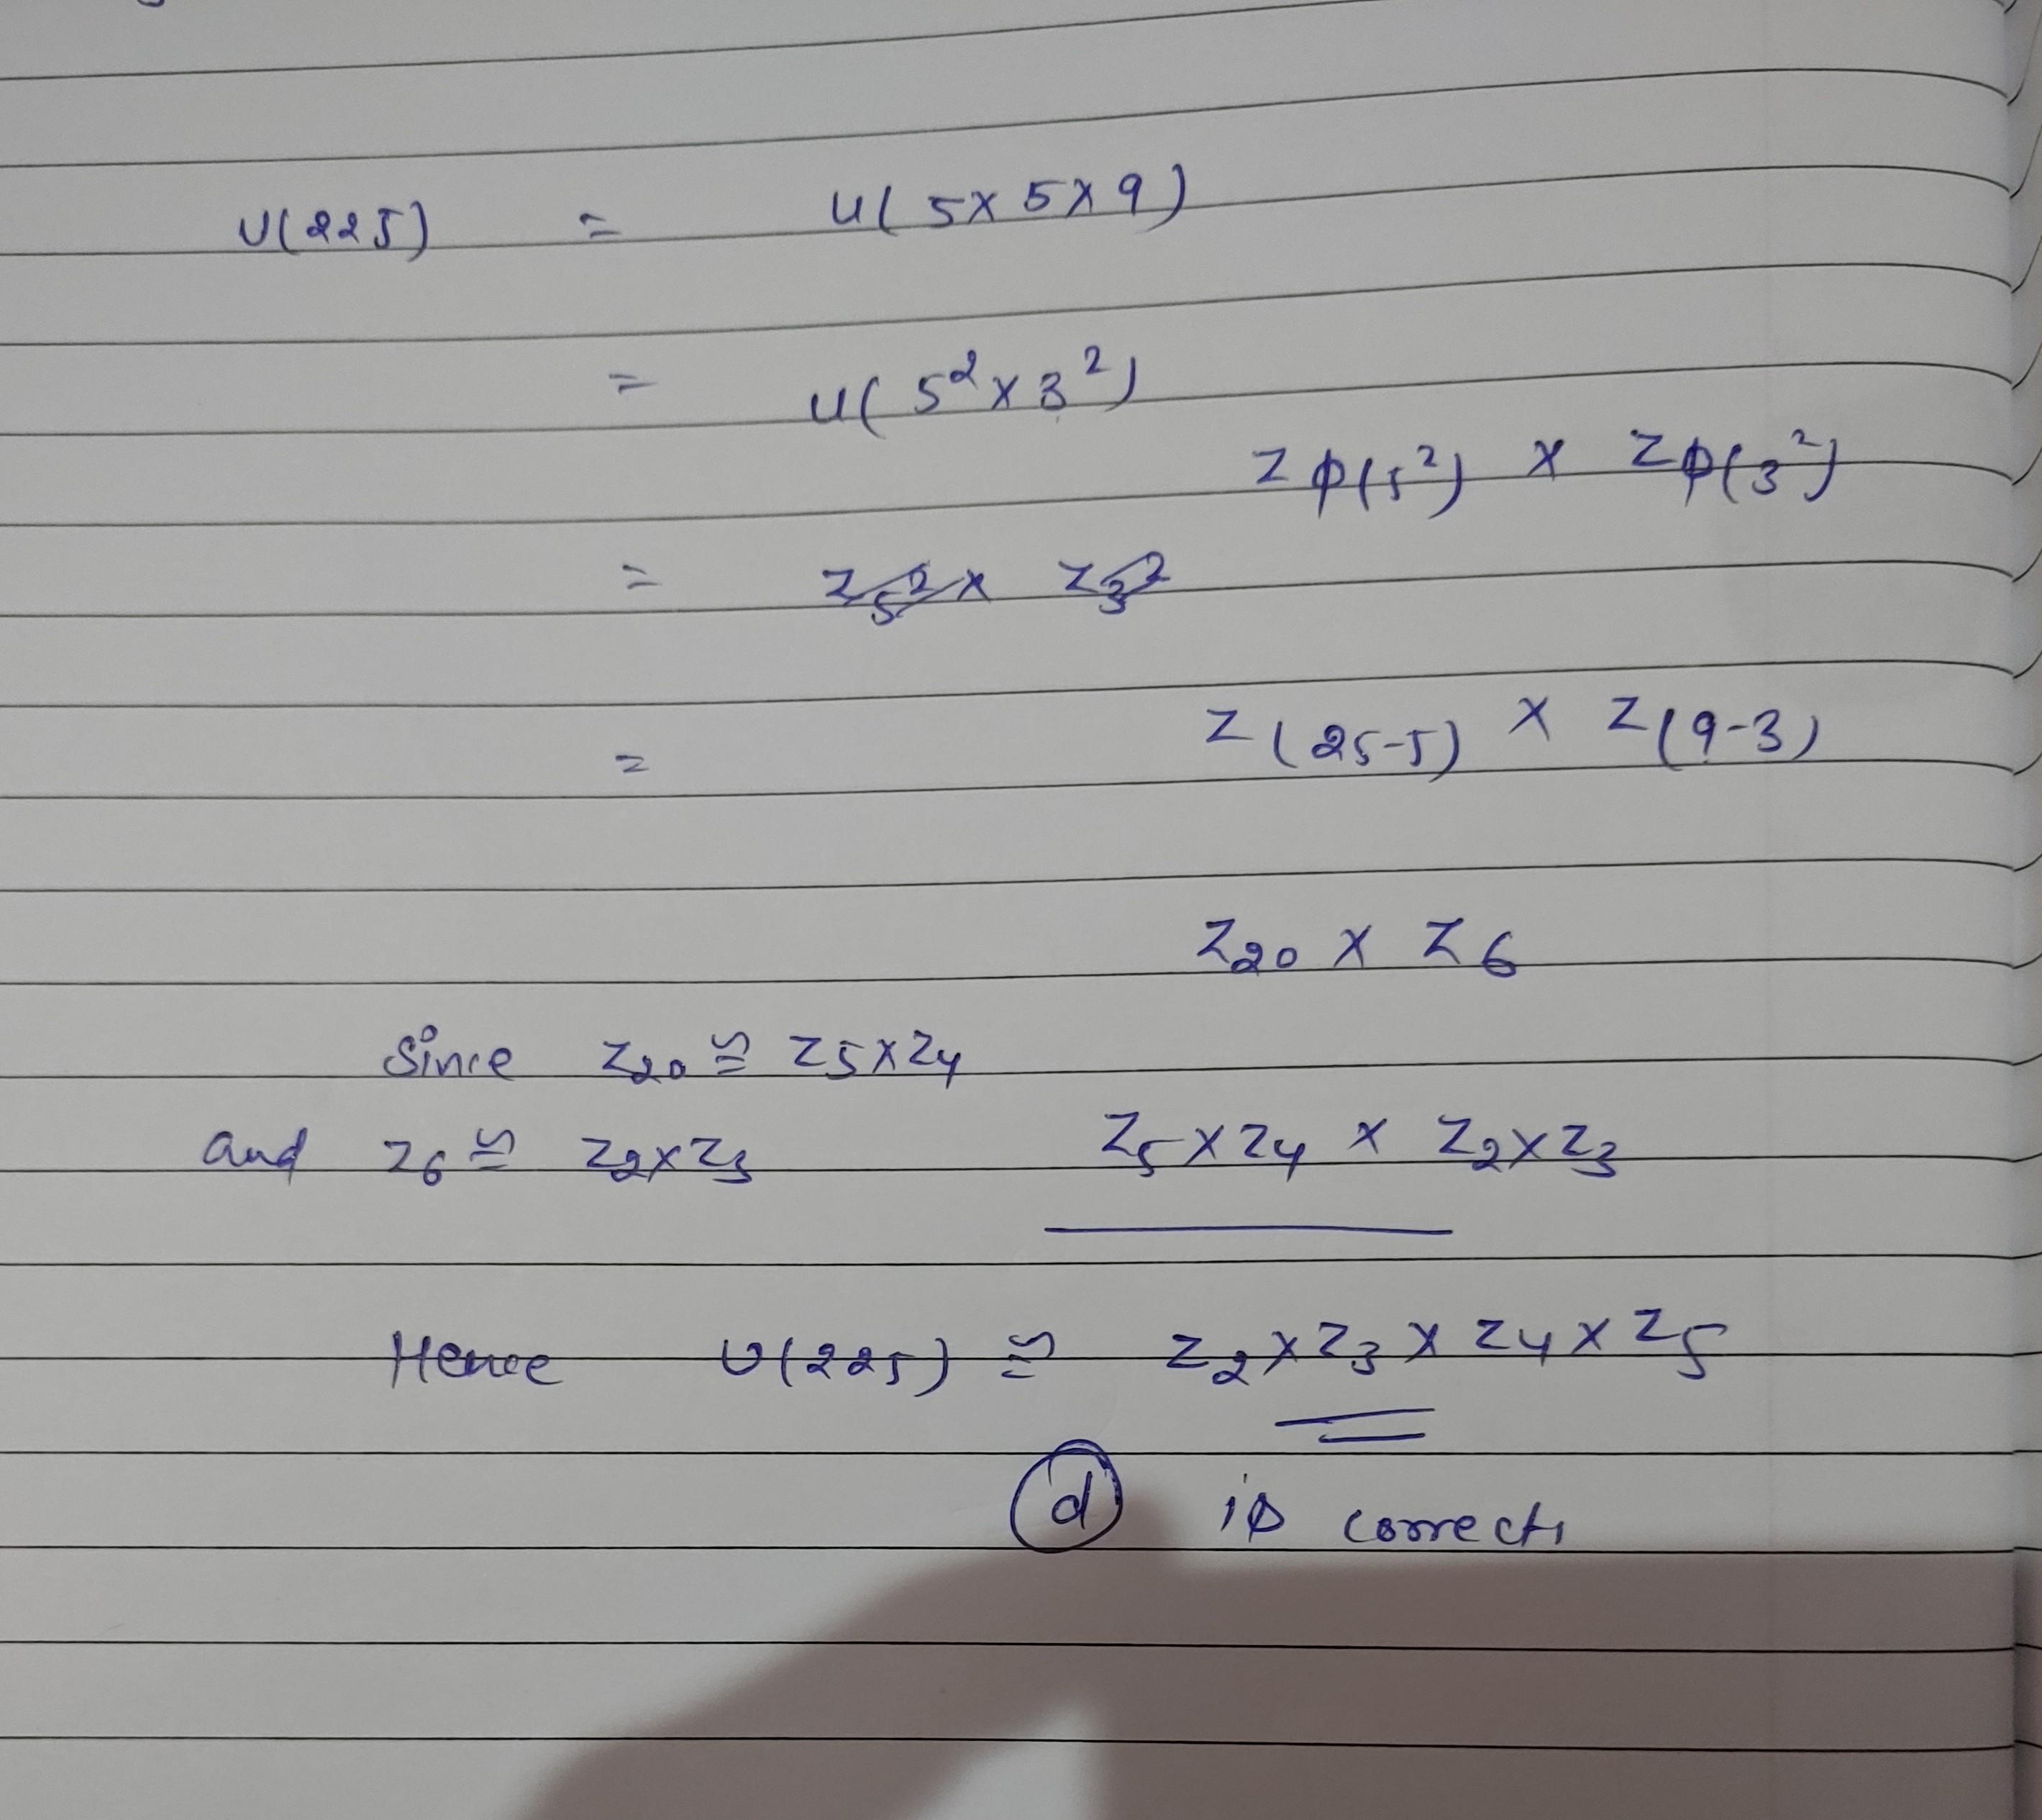 U(225) = U(5×5×9)
= U(5²×3²)
Zϕ(5²) × Zϕ(3²)
= Z5²× Z3²
= Z(25-5) × Z(9-3)
Z20 × Z6
Since Z20 ≅ Z5×Z4
and Z6 ≅ Z2×Z3 Z5×Z4 × Z2×Z3
Hence U(225) ≅ Z2×Z3×Z4×Z5
(d) is correct